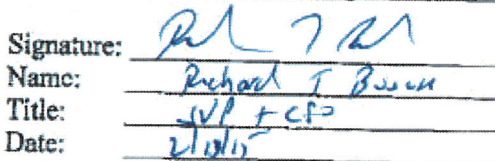 Signature:
Name: Richard T
Title: SVP + CFO
Date: 2/18/15